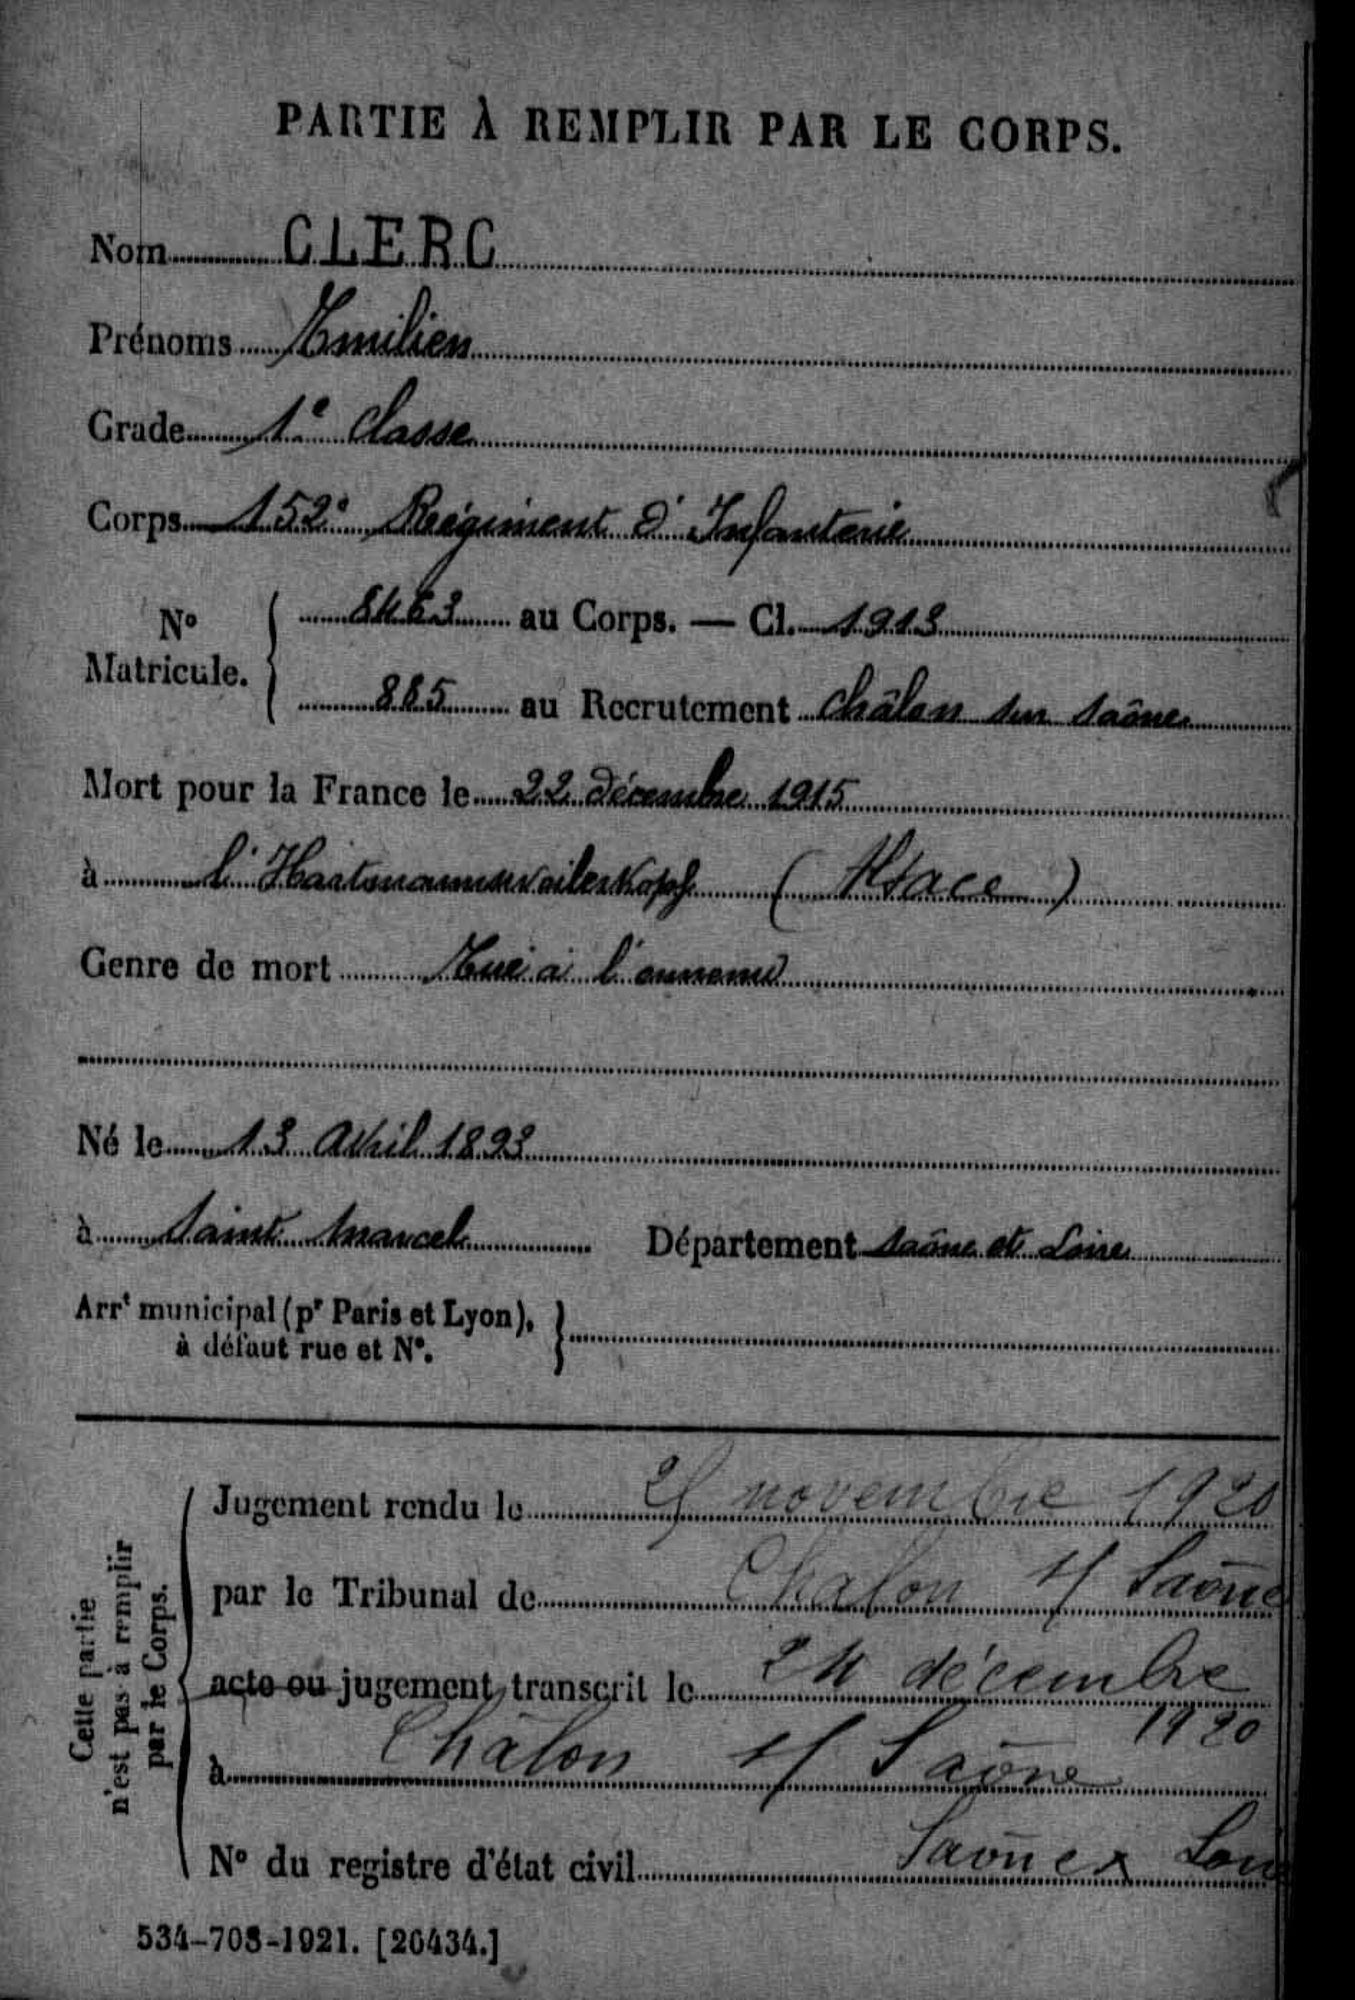 PARTIE À REMPLIR PAR LE CORPS.
Nom CLERC
Prénoms Emilien
Grade 1e Classe
Corps 152e Régiment d'Infanterie
No Matricule. 8463 au Corps. — Cl. 1913
885 au Recrutement Châlon sur Saône
Mort pour la France le 22 décembre 1915
à l'Hartmannsweilerkopf (Alsace)
Genre de mort Tué à l'ennemi
Né le 13 Avril 1893
à Saint Marcel Département Saône et Loire
Arrt municipal (pr Paris et Lyon),
à défaut rue et No.
Cette partie
n'est pas à remplir
par le Corps.
Jugement rendu le novembre 1920
par le Tribunal de Chalon s/ Saône
acte ou jugement transcrit le 24 décembre
1920
à Châlon s/ Saône
No du registre d'état civil Saône &
534-708-1921. [26434.]